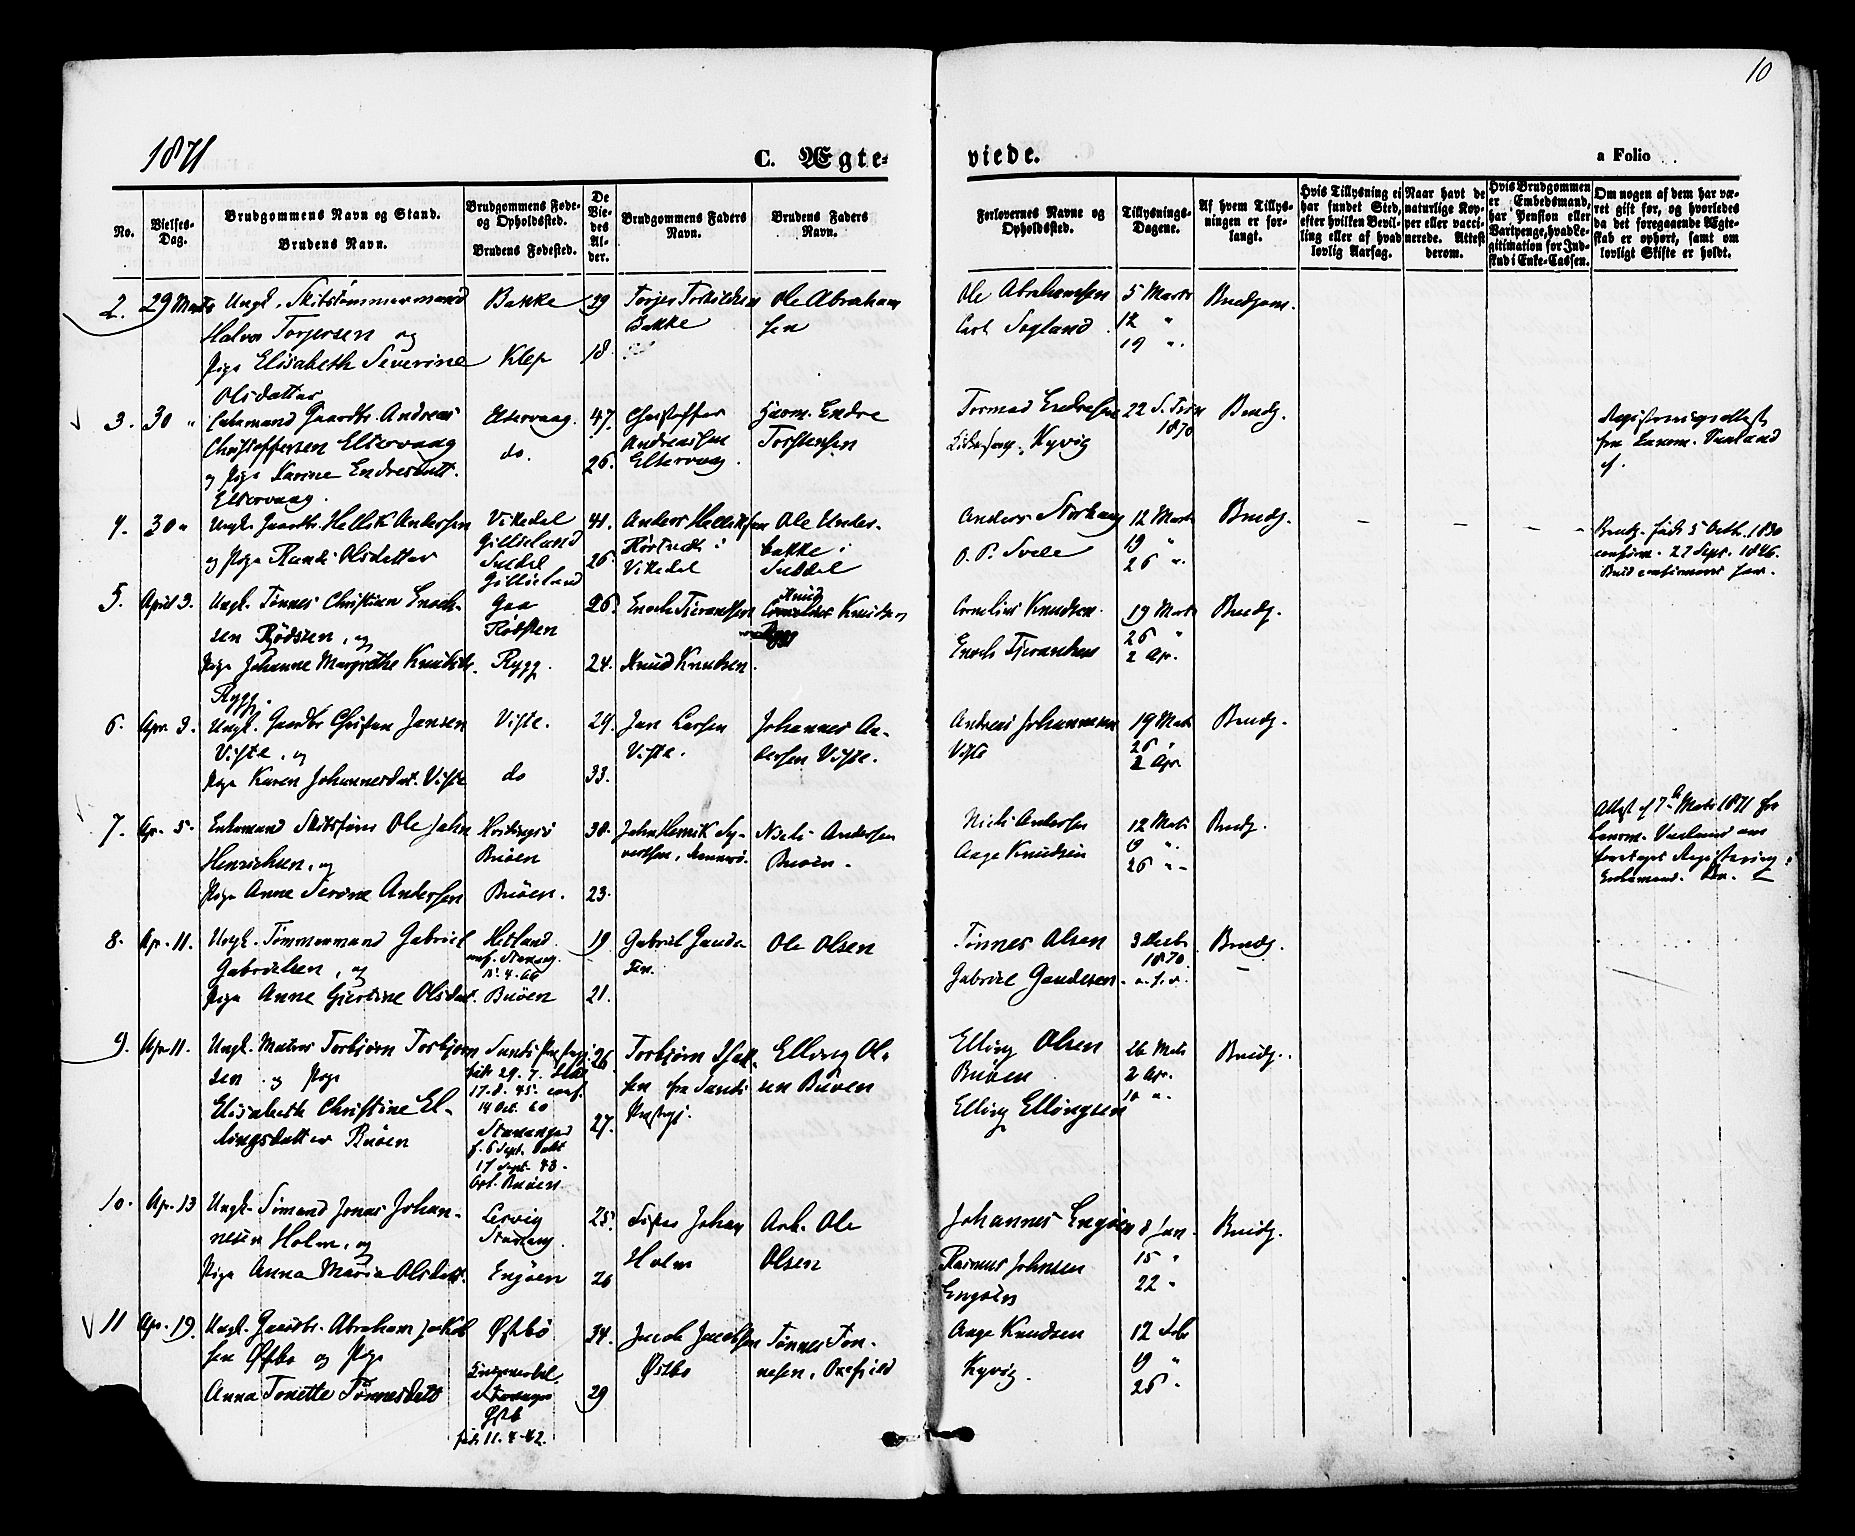 10
1871
C. Ægte-
viede.
a Folio
No.
Vielses-
Dag.
Brudgommens Navn og Stand.
Brudens Navn.
Brudgommens Føde-
og Opholdssted.
Brudens Fødested.
De
Vie-
des
Al-
der.
Brudgommens Faders
Navn.
Brudens Faders
Navn.
Forlovernes Navne og
Opholdssted.
Tillysnings-
Dagene.
Af hvem Tillys-
ningen er for-
langt.
Hvis Tillysning ei
har fundet Sted,
efter hvilken Bevil-
ling eller af hvad
lovlig Aarsag.
Naar havt de
naturlige Kop-
per eller vacci-
nerede. Attest
derom.
Hvis Brudgommen
er Embedsmand,
har Pension eller
Vartpenge, hvad Le-
gitimation for Ind-
skud i Enke-Cassen.
Om nogen af dem har væ-
ret gift før, og hvorledes
da det foregaaende Ægte-
skab er ophørt, samt om
lovligt Skifte er holdt.
2. 29 Marts Ungk. Skibstømmermand
Halvor Torjersen og
Pige Elisabeth Severine
Olsdatter
Bakke
Klep
29
18
Torjer Torkildsen
Bakke
Ole Abraham
sen
Ole Abrahamsen
Carl Sogland
5 Marts
12 "
19 "
Brudgom.
3. 30 " Enkemand Gaardbr. Andreas
Christoffersen Eltervaag
og Pige Karine Endresdatt.
Eltervaag.
Eltervaag.
do.
47.
26.
Christoffer
Andreassen
Eltervaag.
Huusm. Endre
Torstensen
Tormod Endresen
Kyvig
22 S. Trin
1870
Brudg.
Registreringsattest
fra Lensm.
4. 30 " Ungk. Gaardbr. Hellik Andersen
og Pige Randi Olsdatter
Vikedal
Suldal
41.
26.
Anders Helliksen
i
Vikedal
Ole Under-
bakke i
Suldal
Anders Storhaug
O. P. Svele
12 Marts
19 "
26 "
Brudg.
Brudg. født 5 Octb. 1830
confirm. 27 Sept. 1846.
5. April 3. Ungk. Tønnes Christian Enoch-
sen Rødsten, og
Pige Johanne Margrethe Knudsdt.
Rygg.
Gaa
Rødsten
Rygg.
26.
24.
Enoch Tjerandsen
Knud Knudsen.
Knud
Cornelius Knudsen
Rygg
Cornelius Knudsen.
Enoch Tjerandsen
19 Marts
26 "
2 Apr.
Brudg.
6. Apr. 3. Ungk. Gaardbr. Christian Jansen
Viste, og
Pige Karen Johannesdat. Viste
Viste.
do
29.
33.
Jan Larsen
Viste.
Johannes An-
dersen Viste.
Andreas Johannesen
Viste
19 Marts
26 "
2 Apr
Brudg.
7. Ap. 5. Enkemand Skibsfører Ole John
Henrichsen, og
Pige Anne Serine Andersen
Buøen
Buøen.
30.
23.
John Henrik Sy-
vertsen,
Niels Andersen
Buøen.
Niels Andersen
Aage Knudsen
12 Marts
19 "
26 "
Brudg.
Attest af 7de Marts 1871 fra
Lensm.
8. Ap. 11. Ungk. Tømmermand Gabriel
Gabrielsen, og
Pige Anne Gjertine Olsdat.
Hetland
conf. Stavang.
Buøen
19
21.
Gabriel Gunde-
sen.
Ole Olsen
Tønnes Olsen
Gabriel Gundesen
3 Decb.
1870
Brudg.
9. Apr 11. Ungk. Matros Torbjørn Torbjørn
sen og Pige
Elisabeth Christine El-
lingsdatter Buøen
Sands Præstegj.
født 29. 7.
17. 8. 45. conf.
14 Oct. 60
Stavanger
f. 6 Sept. døbt
17 Sept. 43
Buøen.
26
27.
Torbjørn Isak-
sen fra Sands
Præstegj.
Elling Ol-
sen Buøen
Elling Olsen
Buøen
Elling Ellingsen
26 Mts
2 Ap.
10 "
Brudg.
10. Ap. 13 Ungk. Sømand Jonas Johan-
nesen Holm, og
Pige Anna Maria Olsdatt.
Lervig
Stavang.
Engøen
25.
26
Johan
Holm
Arb. Ole
Olsen
Johannes Engøen
Rasmus Johnsen
Engøen
8 Jan.
15 "
22 "
Brudg.
11 Ap. 19. Ungk. Gaardbr. Abraham Jakob
sen Østbø og Pige
Anna Tonette Tønnesdatt
Østbø
født 11. 4. 42.
34.
29
Jacob Jacobsen
Østbø
Tønnes Tøn-
nesen,
Aage Knudsen
Kyvig.
12 Feb
19 "
26 "